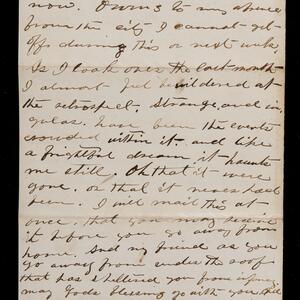 now. Owing to my absence
from the city I cannot get
off during this or next week,
As I look over the last month
I almost feel bewildered at
the retrospect - strange, and sin-
gular, have been the events
crowded within it. and like
a frightful dream it haunts
me still. Oh that it were
gone. or that it never had
been. I will mail this at
once, that you may receive
it before you go away from
home. And my friend as you
go away from under the roof
that has sheltered you from infancy,
may Gods blessing go with you